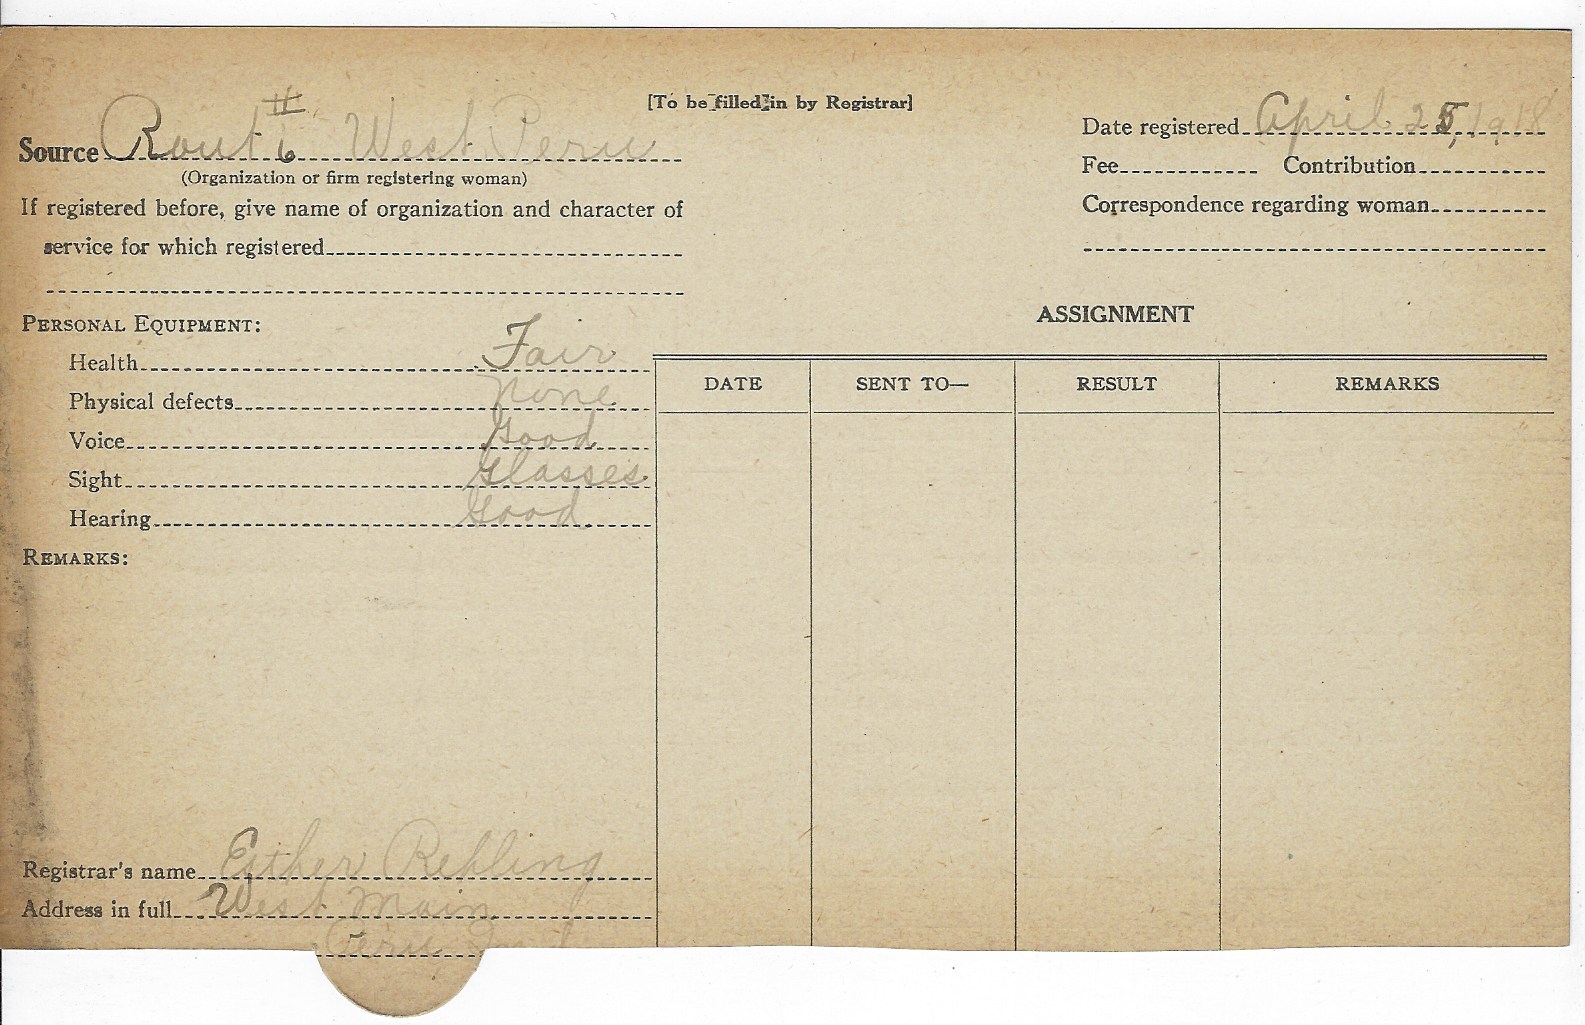 [To be filled in by Registrar]
Source Rout # 6 West Peru
(Organization or firm registering woman)
If registered before, give name of organization and character of
service for which registered
Date registered April 25, 1918
Fee Contribution
Correspondence regarding woman
PERSONAL EQUIPMENT:
Health Fair
Physical defects None
Voice Good
Sight Glasses
Hearing Good
REMARKS:
ASSIGNMENT
DATE SENT TO— RESULT REMARKS
Registrar's name Esther Rehling
Address in full West Main
Peru Ind